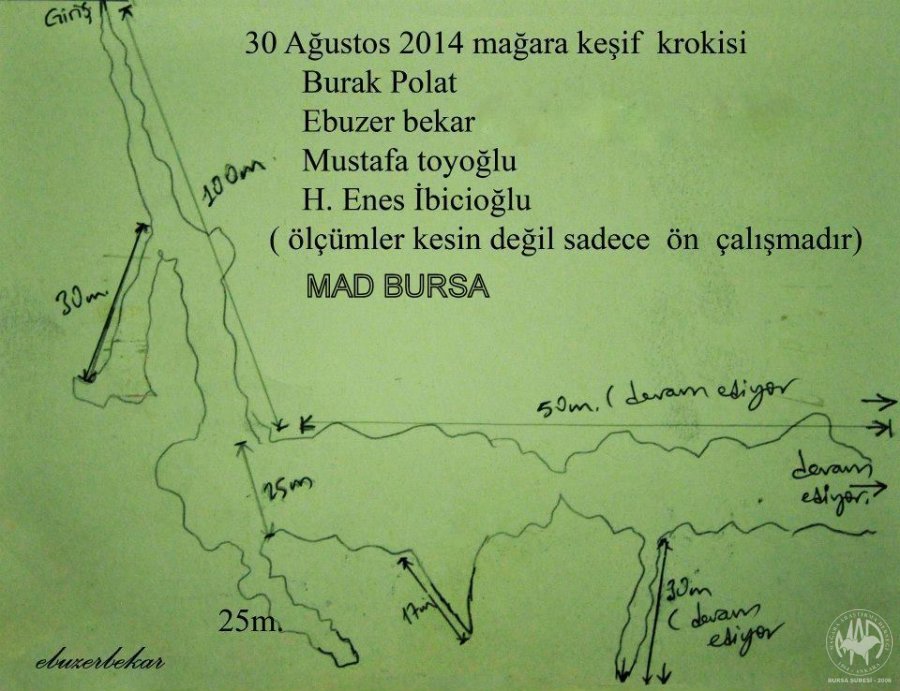 Giriş
30 Ağustos 2014 mağara keşif krokisi
Burak Polat
Ebuzer bekar
Mustafa toyoğlu
H. Enes İbicioğlu
( ölçümler kesin değil sadece ön çalışmadır)
MAD BURSA
100m
30m.
50m. ( devam ediyor
devam
ediyor.
25m
17m
30m
( devam
ediyor
25m.
ebuzerbekar
MAD
BURSA ŞUBESİ - 2006